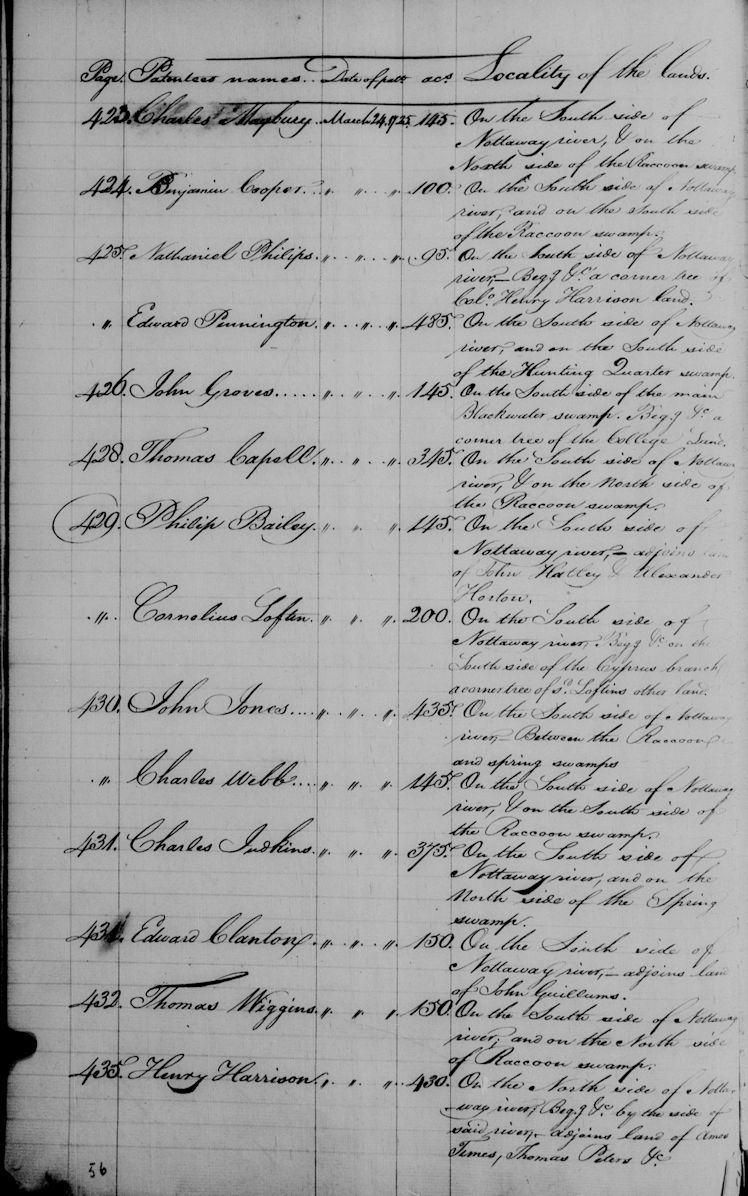 Page. Patentees names. Date of patt. acs. Locality of the lands.
423. Charles Maybury. March 24. 1725. 145. On the South side of
Nottaway river, & on the
North side of the Raccoon swamp
424. Benjamin Cooper. " " " 100. On the South side of Nottaway
river, and on the South side
of the Raccoon swamp.
425. Nathaniel Philips. " " " 95. On the South side of Nottaway
river,– Beg.g &c. a corner tree of
Colo. Henry Harrison land.
" Edward Pennington. " " " 485. On the South side of Nottaway
river, and on the South side
of the Hunting Quarter swamp.
426. John Groves..... " " " 145. On the South side of the main
Blackwater swamp. Beg.g &c a
corner tree of the College Land.
428. Thomas Capell. " " " 345. On the South side of Nottaway
river, & on the North side of
the Raccoon swamp.
429. Philip Bailey. " " " 145. On the South side of
Nottaway river,– adjoins land
of John Hatley & Alexander
Horton.
" Cornelius Loften. " " " 200. On the South side of
Nottaway river, Beg.g &c on the
South side of the Cyprus branch
a corner tree of sd. Loftins other land.
430. John Jones.... " " " 435. On the South side of Nottaway
river,– Between the Raccoon
and spring swamps
" Charles Webb.... " " " 145. On the South side of Nottaway
river, & on the South side of
the Raccoon swamp.
431. Charles Judkins. " " " 375. On the South side of
Nottaway river, and on the
North side of the Spring
swamp.
Edward Clanton. " " " 150. On the South side of
Nottaway river,– adjoins land
of John Guillums.
432. Thomas Wiggins. " " " 150. On the South side of Nottaway
river, and on the North side
of Raccoon swamp.
435. Henry Harrison. " " " 430. On the North side of Notta-
-way river, Beg.g &c. by the side of
said river,– adjoins land of Amos
Times, Thomas Peters &c.
56